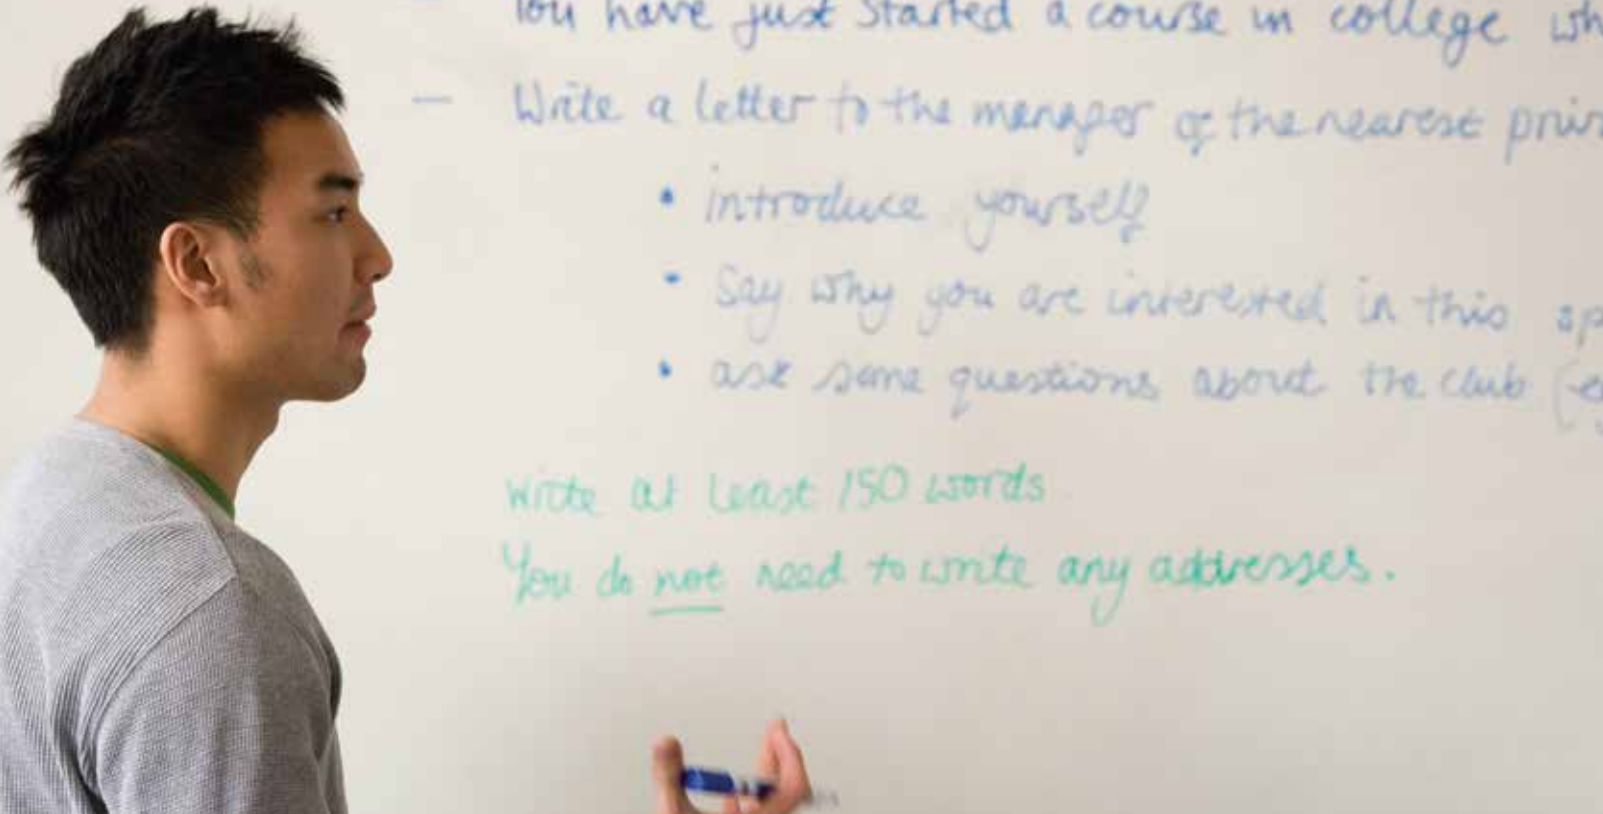 You have just started a course in college wh
— Write a letter to the manager of the nearest priv
• introduce yourself
• Say why you are interested in this sp
• ask some questions about the club (e
Write at least 150 words
You do not need to write any addresses.